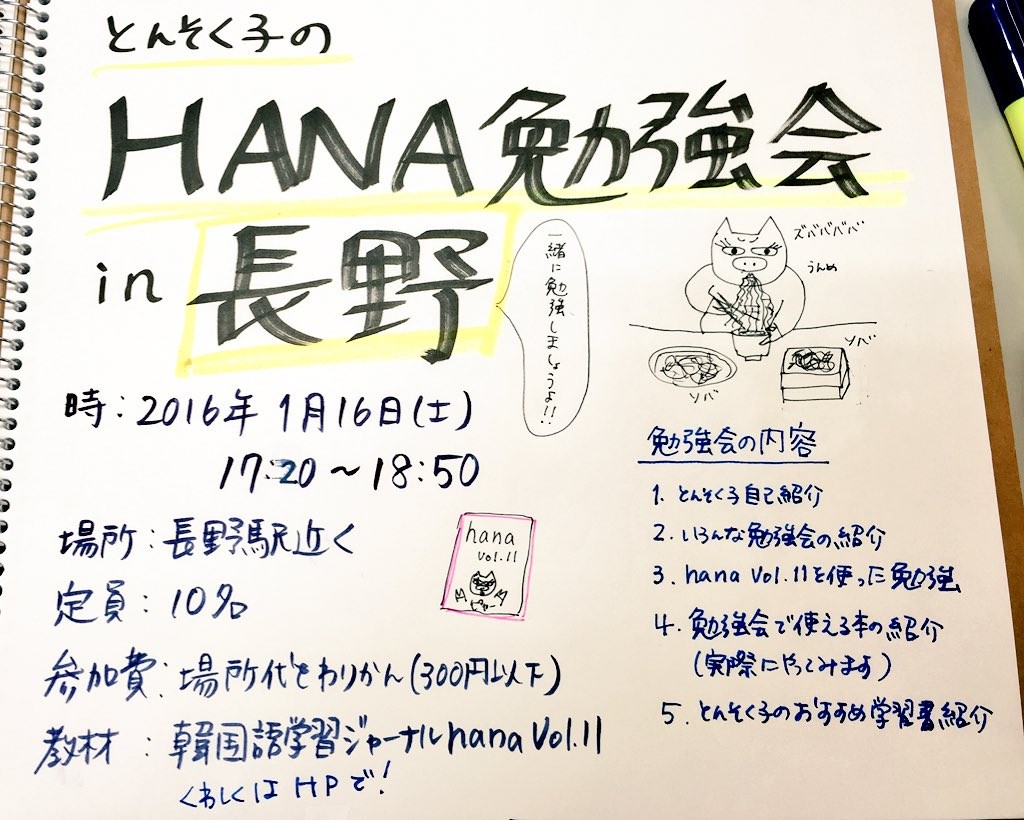 とんそく子の
HANA勉強会
in 長野
一緒に勉強しましょうよ!!
ズババババババ
うんめ
ソバ
ソバ
時:2016年1月16日(土)
17:20〜18:50
場所:長野駅近く
定員:10名
参加費:場所代をわりかん(300円以下)
教材:韓国語学習ジャーナルhana Vol.11
くわしくはHPで!
hana
vol.11
勉強会の内容
1. とんそく子自己紹介
2. いろんな勉強会の紹介
3. hana Vol.11を使った勉強
4. 勉強会で使える本の紹介
(実際にやってみます)
5. とんそく子のおすすめ学習書紹介